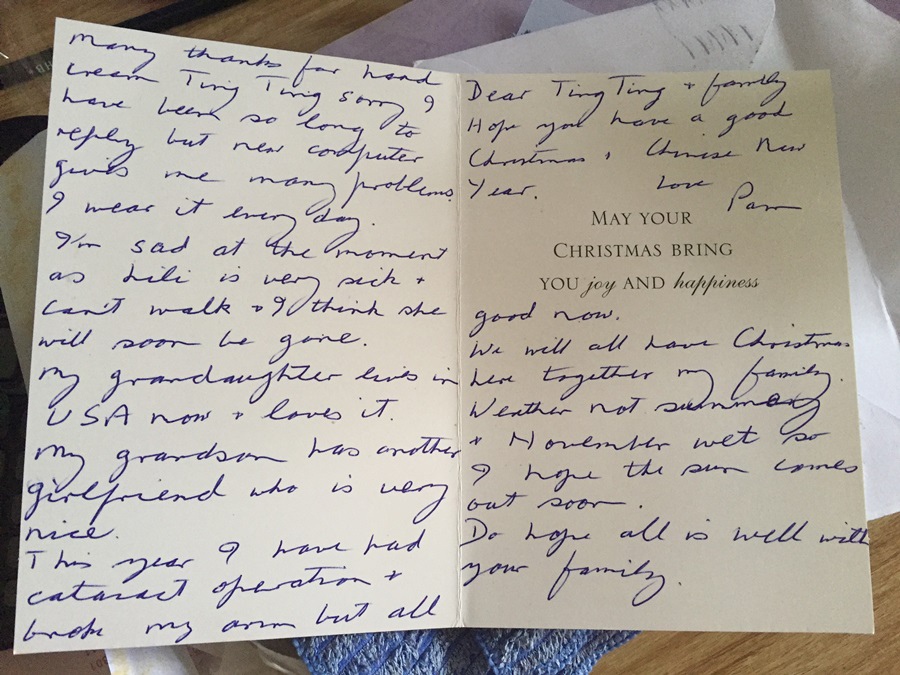 Many thanks for hand
cream Ting Ting sorry I
have been so long to
reply but new computer
gives me many problems.
I wear it every day.
I'm sad at the moment
as Lili is very sick +
can't walk + I think she
will soon be gone.
My grandaughter lives in
USA now + loves it.
My grandson has another
girlfriend who is very
nice.
This year I have had
cataract operation +
broke my arm but all
Dear Ting Ting + family
Hope you have a good
Christmas + Chinese New
Year. Love
Pam
MAY YOUR
CHRISTMAS BRING
YOU joy AND happiness
good now.
We will all have Christmas
here together my family.
Weather not summery
+ November wet so
I hope the sun comes
out soon.
Do hope all is well with
your family.